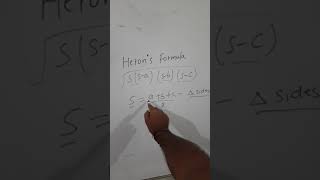 Heron's formula
√S(S-a) (S-b) (S-c)
S = a+b+c - Δ sides